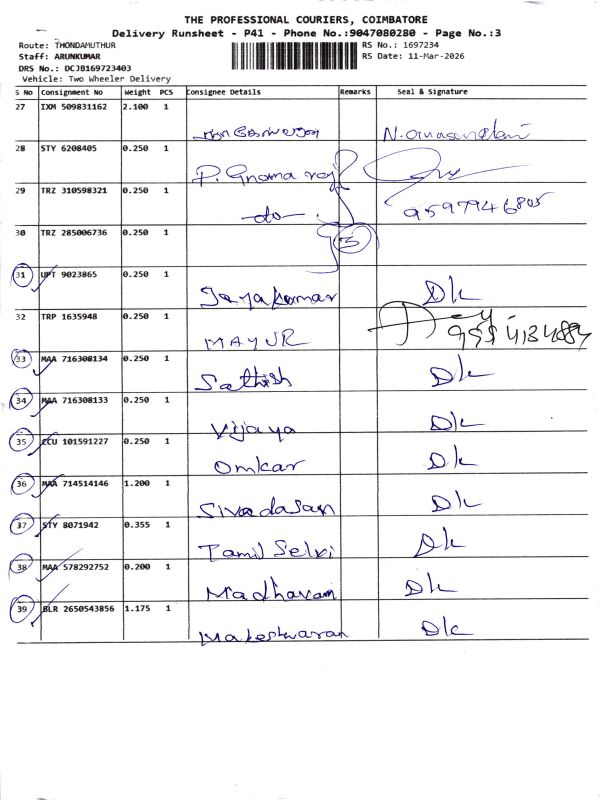 THE PROFESSIONAL COURIERS, COIMBATORE
Delivery Runsheet - P41 - Phone No.:9047080280 - Page No.:3
Route: THONDAMUTHUR
Staff: ARUNKUMAR
DRS No.: DCJB169723403
Vehicle: Two Wheeler Delivery
RS No.: 1697234
RS Date: 11-Mar-2026
S No Consignment No Weight PCS Consignee Details Remarks Seal & Signature
27 IXM 509831162 2.100 1
28 STY 6208405 0.250 1
P. Gnana raj
29 TRZ 310598321 0.250 1
do 9597946805
30 TRZ 285006736 0.250 1
31 UPT 9023865 0.250 1
Jayakumar Dk
32 TRP 1635948 0.250 1
MAYUR
33 MAA 716308134 0.250 1
Sathish Dk
34 MAA 716308133 0.250 1
Vijaya Dk
35 CCU 101591227 0.250 1
Omkar Dk
36 MAA 714514146 1.200 1
Sivadasan Dk
37 STY 8071942 0.355 1
Tamil Selvi Dk
38 MAA 578292752 0.200 1
Madhavan Dk
39 BLR 2650543856 1.175 1
Maheshwaran Dk